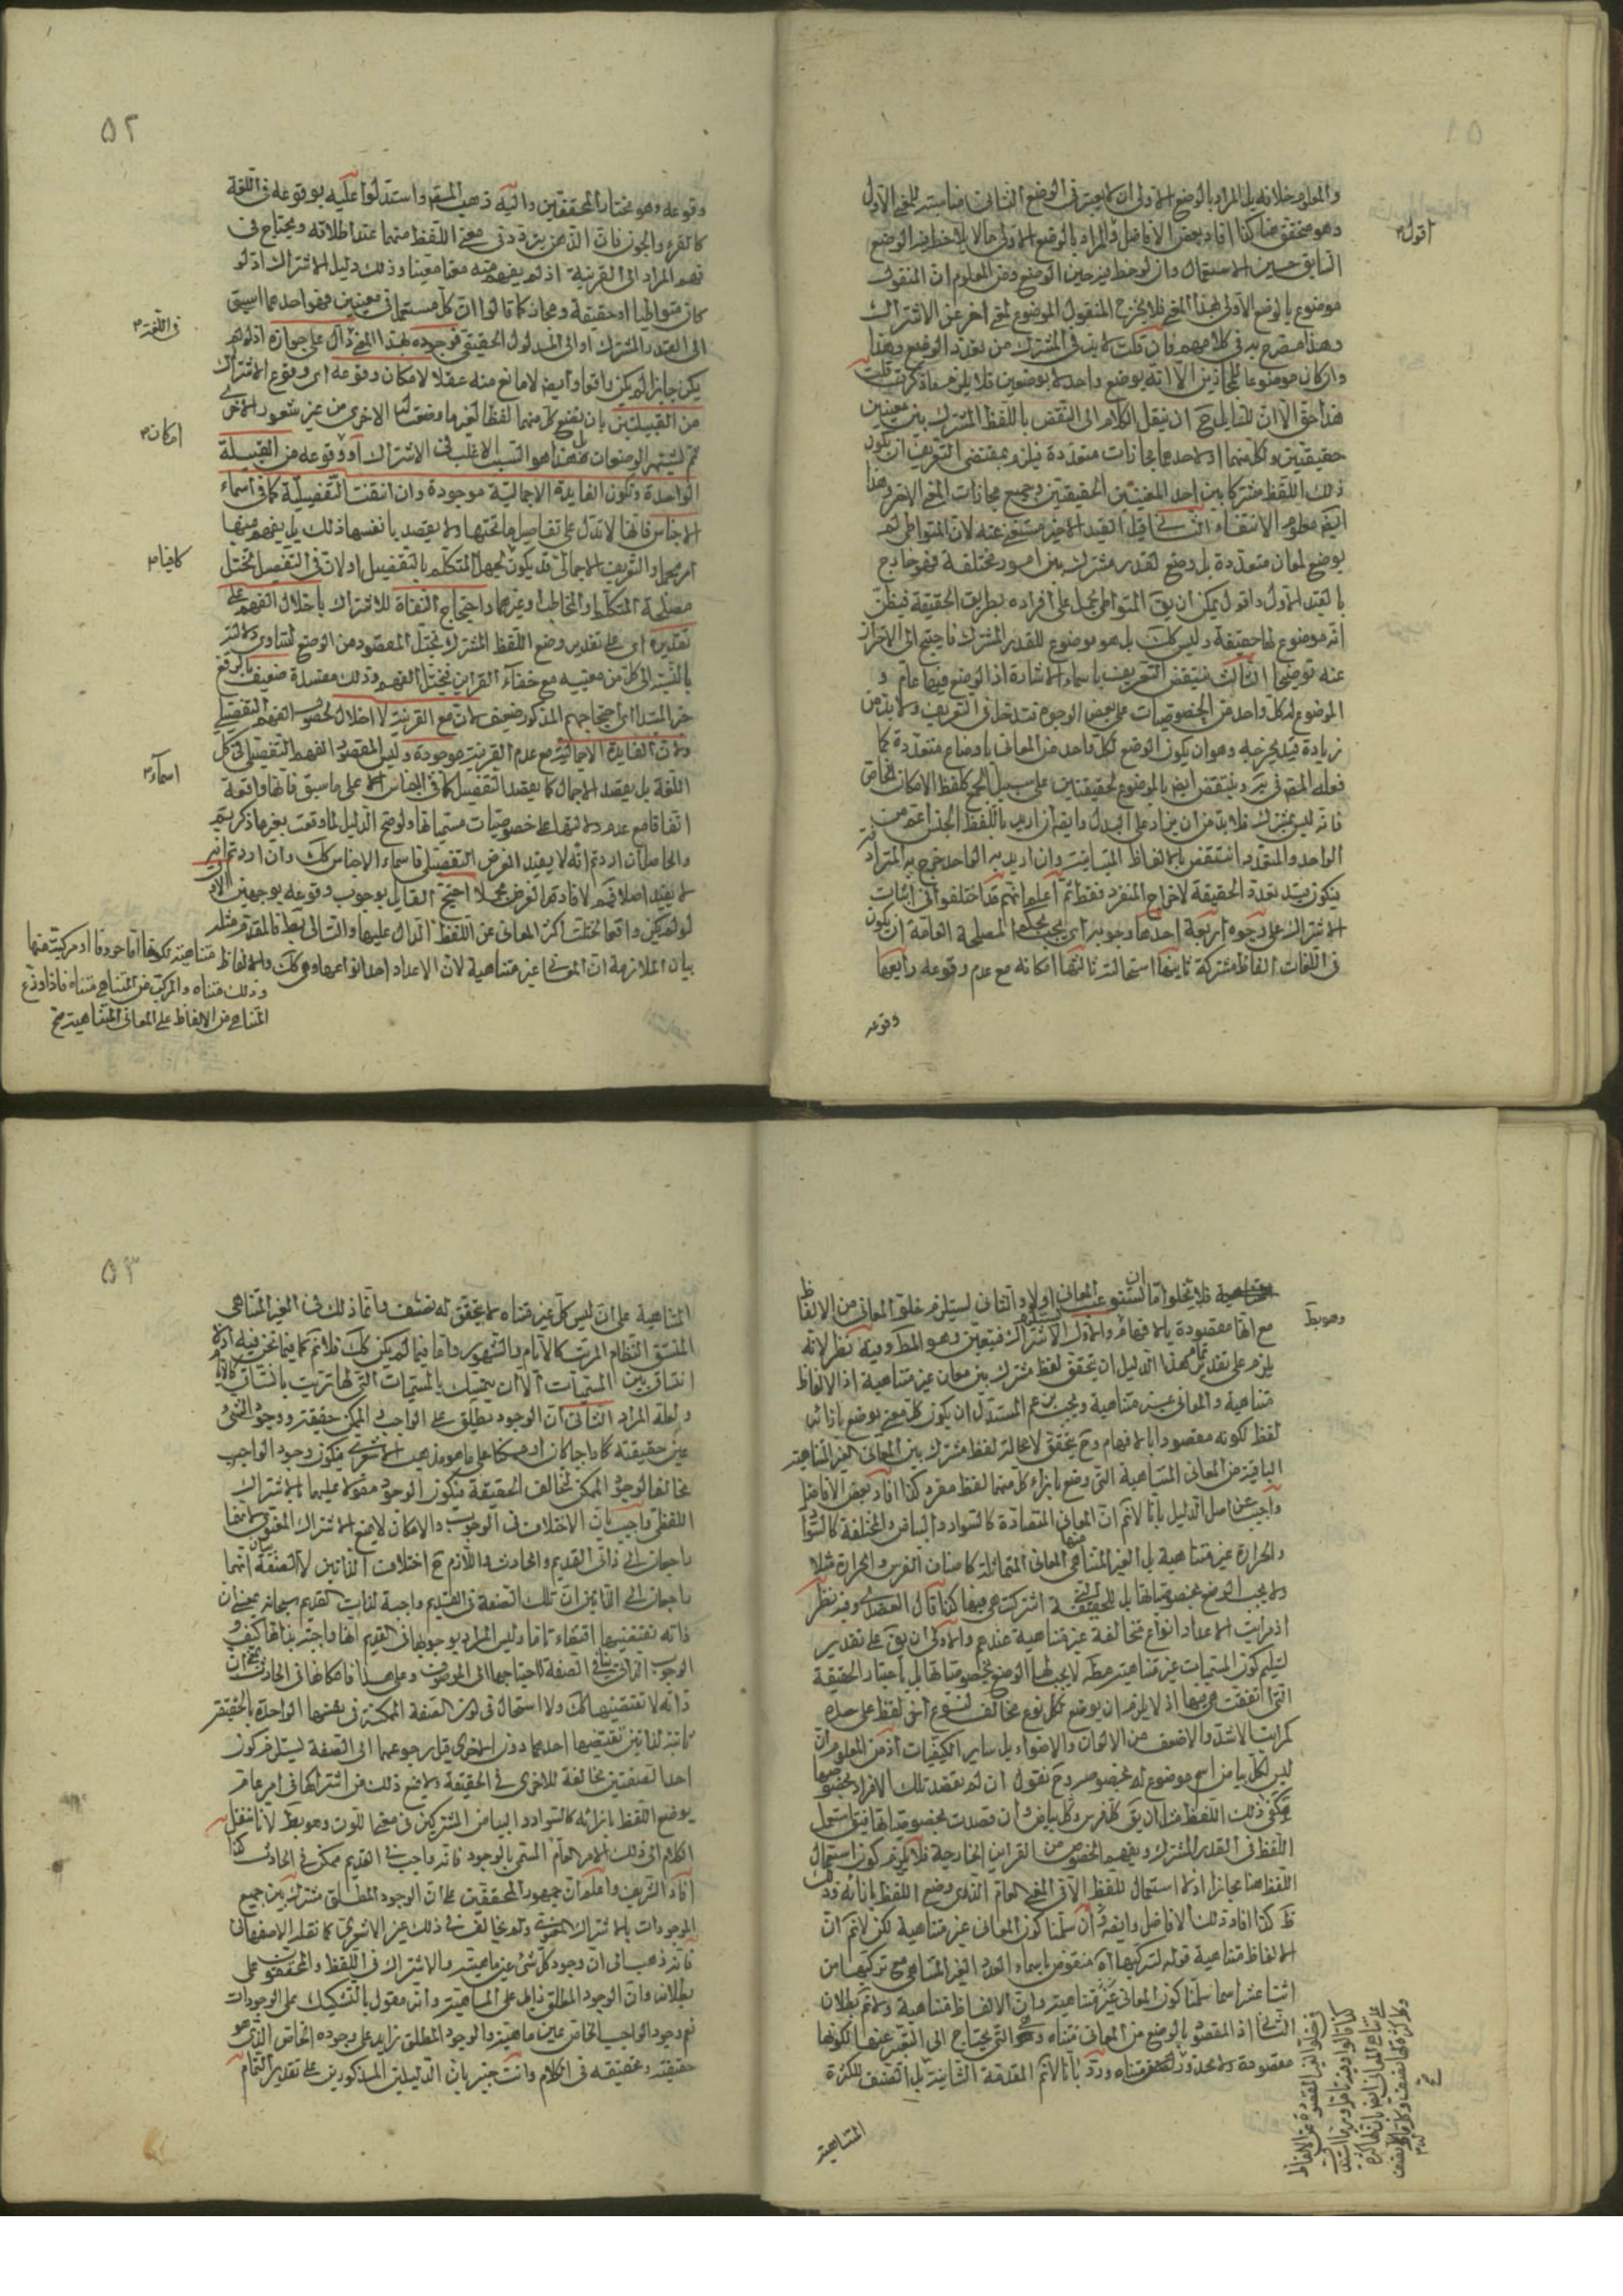 والمعلوم خلافه بل المراد بالوضع الاول ان لا يعتبر في الوضع الثاني مناسبته للمعنى الاول
وهو متحقق هنا كذا افاد بعض الافاضل والمراد بالوضع الاول ما لا يلاحظ فيه الوضع
اقول
السابق حين الاستعمال وان لوحظ فيه حين الوضع ومن المعلوم ان المنقول
موضوع بالوضع الاول بهذا المعنى فلا يخرج المنقول الموضوع لمعنى اخر عن الاشتراك
وهذا مصرح به في كلامهم فان قلت لابد في المشترك من تعدد الوضع وهذا
وان كان موضوعا الا انه بوضع واحد لا بوضعين فلا يلزم ما ذكرت قلت
هذا حق الا ان للقايل ح ان ينقل الكلام الى النقض باللفظ المشترك بين معنيين
حقيقيين ولكل منهما او لاحدهما مجازات متعددة فيلزم بمقتضى التعريف ان يكون
ذلك اللفظ مشتركا بين احد المعنيين الحقيقيين وجميع مجازات المعنى الاخر وهذا
ايضا معلوم الانتفاء الثاني قيل القيد الاخير مستغنى عنه لان المتواطى لم
يوضع لمعان متعددة بل وضع لقدر مشترك بين امور مختلفة فهو خارج
بالقيد الاول واقول يمكن ان يق المتواطى يحمل على افراده بطريق الحقيقة فيظن
انه موضوع لها حقيقة وليس كك بل هو موضوع للقدر المشترك فاحتيج الى الاحتراز
عنه توضيحا الثالث ينتقض التعريف باسماء الاشارة اذ الوضع فيها عام و
الموضوع له كل واحد من الخصوصيات على بعض الوجوه فتدخل في التعريف ولا بد من
زيادة قيد يخرجه وهو ان يكون الوضع لكل واحد من المعاني باوضاع متعددة كما
فعله المص في ير وينتقض ايض بالموضوع لحقيقتين على سبيل الجمع كلفظ الامكان الخاص
فانه ليس بمشترك فلابد من ان يزاد على البدل وايضا ان اريد باللفظ الجنس اعم من
الواحد والمتعدد انتقض بالالفاظ المتباينة وان اريد به الواحد خرج به المترادفة
فيكون قيد تعدد الحقيقة لاخراج المنفرد فقط ثم اعلم انهم قد اختلفوا في اثبات
الاشتراك على وجوه اربعة احدها وجوبه اى يجب بحكم المصلحة العامة ان يكون
في اللغات الفاظ مشتركة ثانيها استحالته ثالثها امكانه مع عدم وقوعه رابعها
وقوعه
٥٢
وقوعه وهو مختار المحققين واليه ذهب المص واستدلوا عليه بوقوعه في اللغة
كالقرء والجون فان الذهن يتردد في معنى اللفظ منهما عند اطلاقه ويحتاج في
فهم المراد الى القرينة اذ لم يفهم منه معنى معينا وذلك دليل الاشتراك اذ لو
كان متواطيا او حقيقة ومجاز كما قالوا ان كل مستعمل في معنيين فهو احدهما لسبق
في اللغة
الى القدر المشترك او الى المدلول الحقيقي فوجوده بهذا المعنى دال على جوازه اذ لو لم
يكن جايزا لم يكن واقعا وايض لا مانع منه عقلا لامكان وقوعه اى وقوع الاشتراك
من القبيلتين بان تضع كل منهما لفظا لغير ما وضعت له الاخرى من غير شعور الاخرى
امكان
ثم ليشتهر الوضعان بل هذا هو السبب الاغلب في الاشتراك او وقوعه من القبيلة
الواحدة وتكون الفايدة الاجمالية موجودة وان انتفت التفصيلية كما في اسماء
الاجناس فانها لا تدل على تفاصيل ما تحتها ولا يقصد بانفسها ذلك بل يفهم منها
امر مجمل والتعريف الاجمالي قد يكون لجهل المتكلم بالتفصيل او لان في التفصيل تختل
كافيا
مصلحة المتكلم والمخاطب او غيرهما واحتجاج النفاة للاشتراك باخلال الفهم على
تقديره اى على تقدير وضع اللفظ المشترك يختل المقصود من الوضع لتساوى دلالته
بالنسبة الى كل من معنييه مع خفاء القراين فيختل الفهم وذلك مفسدة ضعيف بالرفع
خبر المبتدا اى احتجاجهم المذكور ضعيف لان مع القرينة لا اخلال لحصول الفهم التفصيلي
ولان الفايدة الاجمالية مع عدم القرينة موجودة وليس المقصود الفهم التفصيلي في كل
اللغة بل يقصد الاجمال كما يقصد التفصيل كما في الاجناس على ما سبق فانها واقعة
اسماء
اتفاقا مع عدم دلالتها على خصوصيات مسمياتها ولو صح الدليل لما وقعت بغير ما ذكرتم
والحاصل ان اردتم انه لا يفيد الغرض التفصيلي فاسماء الاجناس كك وان اردتم انه
لا يفيد اصلا لافادته الغرض مجملا احتج القايل بوجوب وقوعه بوجهين الاول
لو لم يكن واقعا لخلت اكثر المعاني عن اللفظ الدال عليها والتالي بط فالمقدم مثله
بيان الملازمة ان المعاني غير متناهية لان الاعداد احد انواعها وهي كك والالفاظ متناهية لكونها ماخوذة او مركبة منها
وذلك متناه والمركب من المتناهى متناه فاذا وزع
المتناهى من الالفاظ على المعاني المتناهية صح
فلا تخلوا اما ان المعاني او لا والثاني يستلزم خلو المعاني من الالفاظ
مع انها مقصودة بالافهام والاول الاشتراك فيتعين وهو المط وفيه نظر لانه
وهو بط
يلزم على تقدير تمام هذا الدليل ان تحقق لفظ مشترك بين معان غير متناهية اذ الالفاظ
متناهية والمعاني غير متناهية ويجب بزعم المستدل ان يكون كل معنى يوضع بازائه
لفظ لكونه مقصودا بالافهام وح يتحقق لا محالة لفظ مشترك بين المعاني الغير المتناهية
الباقية من المعاني المتناهية التي وضع بازاء كل منها لفظ مفرد كذا افاد بعض الافاضل
واجيب عن اصل الدليل بانا لا نم ان المعاني المتضادة كالسواد والبياض والمختلفة كالسواد
والحرارة غير متناهية بل الغير المتناهى منها المعاني المتماثلة كاصناف الفرس والحرارة مثلا
ولا يجب الوضع بخصوصياتها بل للحقيقة التي اشتركت هي فيها كذا قال العضدى وفيه نظر
اذ مراتب الاعداد انواع متخالفة غير متناهية عندهم والاولى ان يق على تقدير
تسليم كون المسميات غير متناهية مط لا يجب لها الوضع بخصوصياتها بل باعتبار الحقيقة
التي اتفقت هي فيها اذ لا يلزم ان يوضع لكل نوع مخالف لنوع اخر لفظ على حده
كمراتب الاشد والاضعف من الالوان والاضواء بل ساير الكيفيات اذ من المعلوم ان
ليس لكل بياض اسم موضوع له مخصوص وح نقول ان لم يقصد تلك الافراد بخصوصها
يكفى ذلك اللفظ مثل ان يق كل فرس وكل بياض وان قصدت بخصوصياتها فيق استعمل
اللفظ في القدر المشترك ويفهم الخصوص من القراين الخارجية فلا يلزم كون استعمال
اللفظ هنا مجازا اذ لا استعمال للفظ الا في المعنى العام الذي وضع اللفظ بازائه
كذا افاد ذلك الافاضل وايضا ان سلمنا كون المعاني غير متناهية لكن لا نم ان
الالفاظ متناهية قوله لتركبها اه منقوض باسماء العدد الغير المتناهى مع تركبها من
اثنا عشر اسما سلمنا كون المعاني غير متناهية وان الالفاظ متناهية ولا نم بطلان
التالي اذ المقصود بالوضع من المعاني متناه وهو التي يحتاج الى التعبير عنها لكونها
مقصودة ورد بانا لا نم المقدمة الثانية
المتناهية
٥٣
المتناهية على ان ليس كل غير متناه مما يتحقق له نصف وانما ذلك في الغير المتناهى
المتسق النظام المرتب كالايام والشهور واما فيما لم يكن كك فلا نم كما فيما نحن فيه اذ لا
اتساق بين المسميات الا ان يتمسك بالمسميات التي لها ترتيب
ولعله المراد الثاني ان الوجود يطلق على الواجب والممكن حقيقة ووجود الشئ
عين حقيقته كما هو مذهب الاشعرى فيكون وجود الواجب
مخالفا لوجود الممكن لتخالف الحقيقة فيكون الوجود مقولا عليهما بالاشتراك
اللفظي واجيب بان الاختلاف في الوجوب والامكان لا يمنع الاشتراك المعنوى
راجعان الى ذاتي القديم والحادث واللازم ح اختلاف الذاتين لا الصفة
راجعان الى الذاتين ان تلك الصفة في القديم واجبة لذات القديم سبحانه بمعنى ان
ذاته تقتضيها اقتضاء تاما وليس المراد بوجوبها في القديم انها واجبة بذاتها كيف و
الوجوب الذاتي ينافي الصفة لاحتياجها الى الموصوف وعلى هذا فامكانها في الحادث بمعنى ان
ذاته لا تقتضيها كك ولا استحال في كون الصفة الممكنة في نفسها الواحدة بالحقيقة
ثابتة لذاتين تقتضيها احدهما دون الاخرى رجوعهما الى الصفة ليستلزم كون
احد الصفتين مخالفة للاخرى في الحقيقة ولا يمنع ذلك من اشتراكهما في امر عام
يوضع اللفظ بازائه كالسواد والبياض المشتركين في معنى اللون وهو بط لانا ننقل
الكلام الى ذلك الامر العام المسمى بالوجود فانه واجب في القديم ممكن في الحادث كذا
افاد الشريف واعلم ان جمهور المحققين على ان الوجود المطلق مشترك بين جميع
الموجودات بالاشتراك المعنوى ولم يخالف في ذلك غير الاشعرى كما نقله الاصفهاني
فانه ذهب الى ان وجود كل شئ عين ماهيته والاشتراك في اللفظ والمحققون على
بطلانه وان الوجود المطلق زايد على الماهية وانه مقول بالتشكيك على الوجودات
نعم وجود الواجب الخاص عين ماهيته والوجود المطلق زايد على وجوده الخاص الذي هو
حقيقته وتحقيقه في الكلام وانت خبير بان الدليلين المذكورين على تقدير التمام